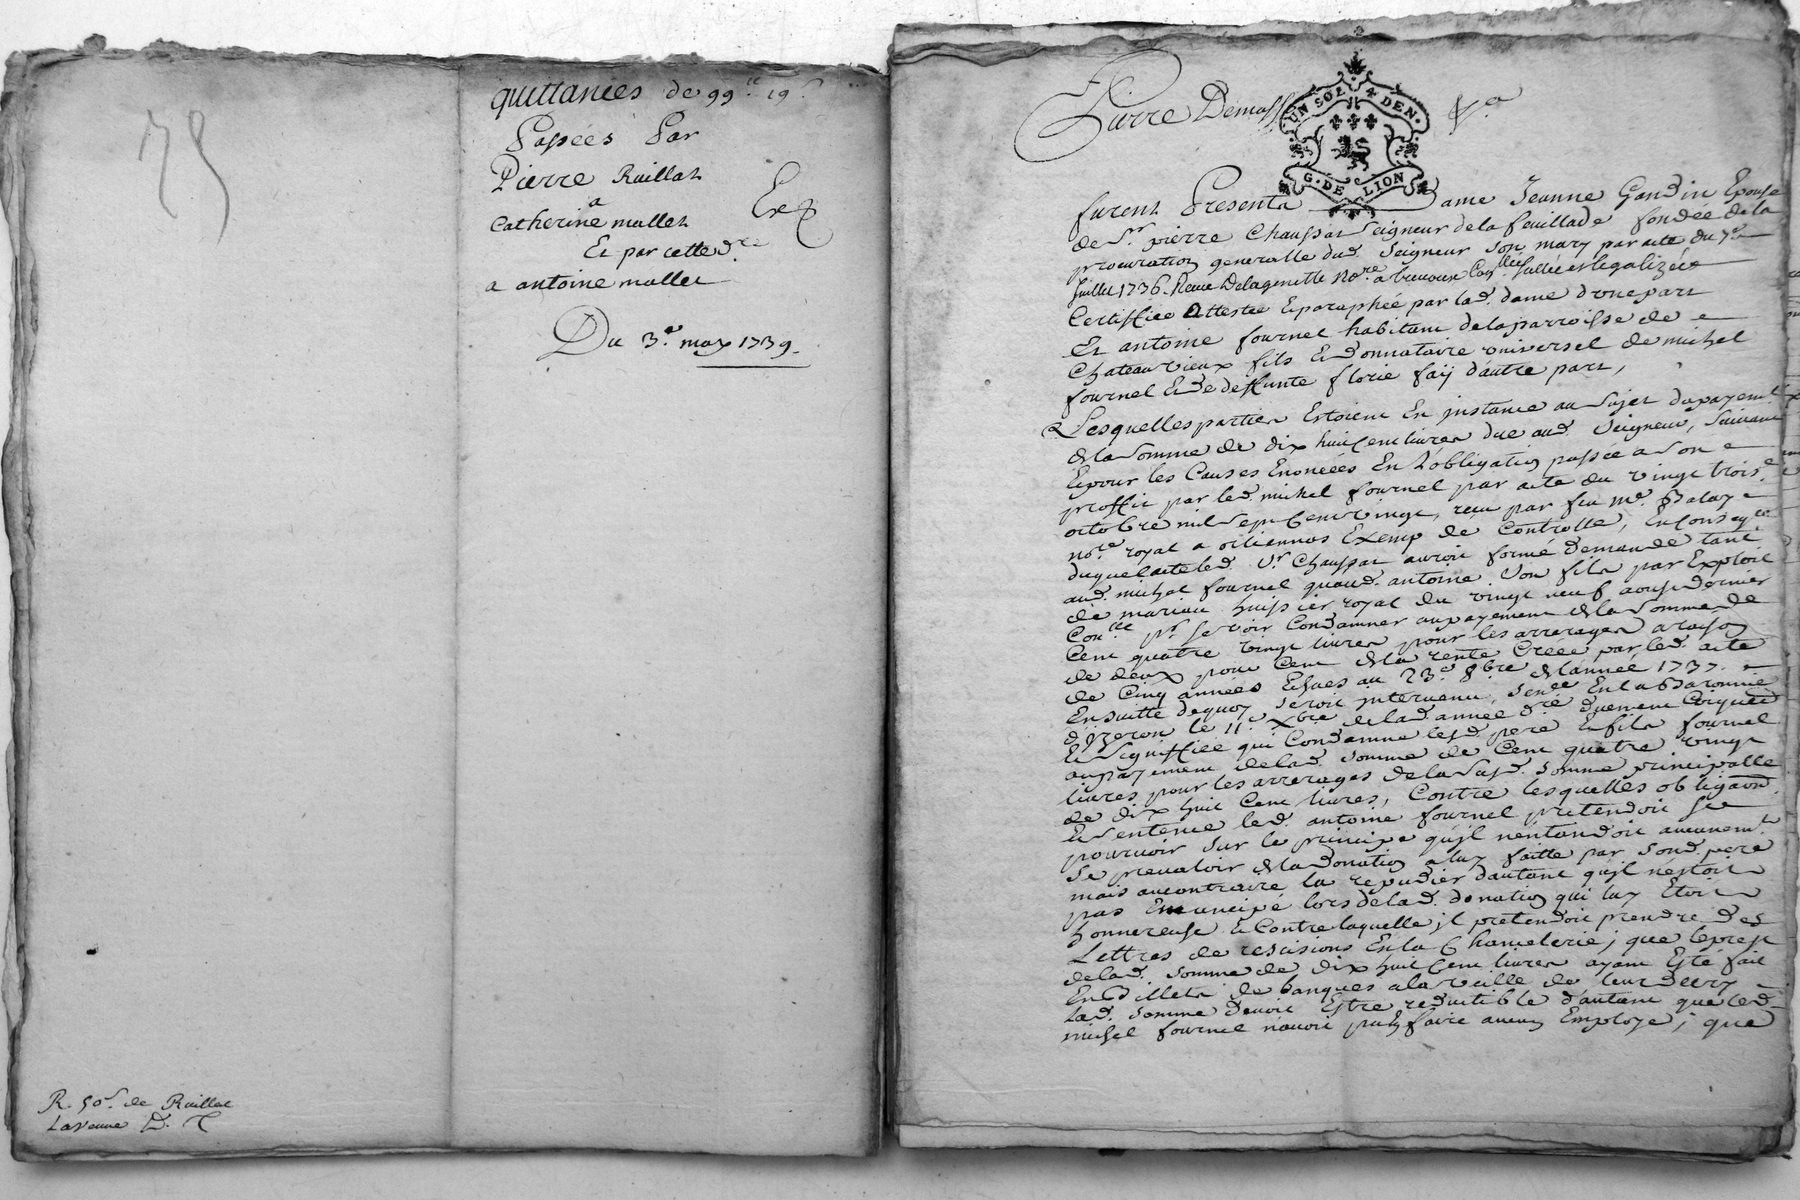 75
quittances de 99ᵗᵗ 19ˢ
Passées Par
Pierre Ruillat
a
Catherine mallet
Exp
Et par cette dre
a antoine mallet
Du 3e may 1739.
R. 50s. de Ruillat
La veuve D.
Pierre
UN SOL 4 DEN.
G. DE LION
furent Presents Dame Jeanne Gondin Epouse
de Sr pierre Chaussat Seigneur de la feuillade fondée de la
procuration generalle dud Seigneur son mary par acte du 7e
Juillet 1736. Receue Delagenette Nore a brevoux Collée sellée et legalizée
Certiffiée Attestée Eparaphée par lad. dame d'une part
Et antoine fournel habitant de la parroisse de
Chateauvieux fils Et donnataire universel de michel
fournel Et de deffunte florie faij d'autre part,
Lesquelles parties Estoient En jnstance au Sujet du payemt
de la Somme de dix huit cent livres due aud Seigneur, Suivant
Et pour les Causes Enoncées En L'obligation passée a Son
proffit par led. michel fournel par acte du vingt troise
octobre mil sept Cent vingt, recu par feu Me. Balay
nore royal a oiliennas Exemp de Controlle, En Conseqce
duquel acte led. Sr Chaussat auroit formé demande tant
aud. michel fournel quaud. antoine Son fils par Exploit
de mariau huissier royal du vingt neuf aoust dernier
Conllé pr. Se voir Condamner au payement de la Somme de
Cent quatre vingt livres pour les arrerages a raison
de deux pour Cent de la rente Créée par led. acte
de Cinq années Echues au 23e 8bre de l'année 1737.
Ensuitte dequoy Seroit jntervenu, Sence En la Baronnie
d'yzeron le 11e xbre de lad année dre duement Expediée
Et Signiffiée qui Condamne lesd pere Et fils fournel
au payement de lad Somme de Cent quatre vingt
livres pour les arrerages de la Susd. Somme principalle
de dix huit Cent livres, Contre lesquelles obligaon
Et Sentence led. antoine fournel pretendoit Se
pourvoir Sur le principe qu'jl n'entendoit aucunemt
Se prevaloir de la donation a luy faitte par Sond. pere
mais au contraire la repudier d'autant qu'jl n'estoit
pas Emancipé lors de lad. donation qui luy Etoit
honnereuse Et Contre laquelle jl pretendoit prendre des
Lettres de rescisions En la Chancelerie ; que le prest
de lad. Somme de dix huit Cent livres ayant Esté fait
En Billets de banques a la veille de leur decry
lad. Somme devoit Estre reductible d'autant que led
michel fournel n'avoit pu En faire aucun Employe ; que